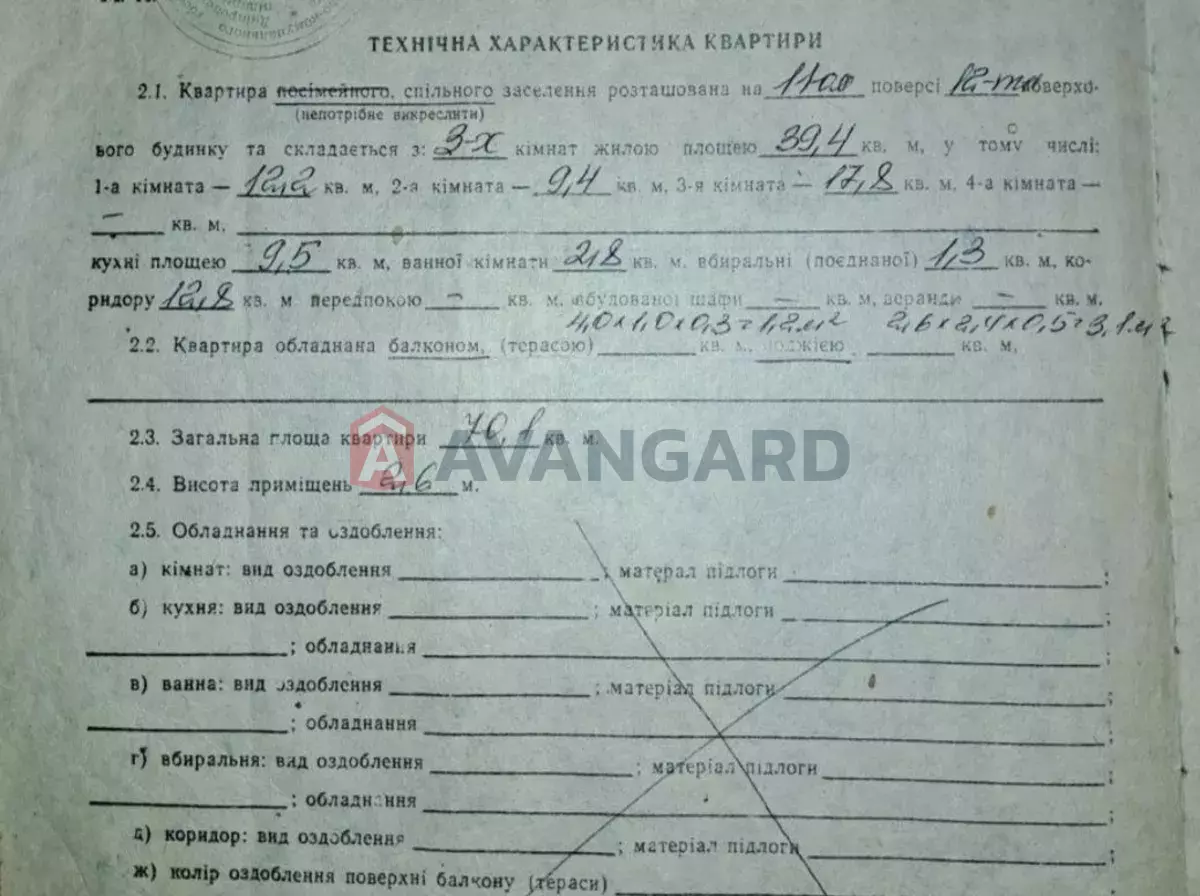 ТЕХНІЧНА ХАРАКТЕРИСТИКА КВАРТИРИ
2.1. Квартира посімейного, спільного заселення розташована на 11ом поверсі 12-ти поверхо-
(непотрібне викреслити)
вого будинку та складається з: 3-х кімнат жилою площею 39,4 кв. м, у тому числі:
1-а кімната — 12,2 кв. м, 2-а кімната — 9,4 кв. м, 3-я кімната — 17,8 кв. м, 4-а кімната —
— кв. м,
кухні площею 9,5 кв. м, ванної кімнати 2,8 кв. м. вбиральні (поєднаної) 1,3 кв. м, ко-
ридору 12,8 кв. м передпокою — кв. м, вбудованої шафи — кв. м, веранди — кв. м,
4,0×1,0×0,3=1,2м² 2,6×2,4×0,5=3,1м²
2.2. Квартира обладнана балконом, (терасою) кв. м, лоджією кв. м,
2.3. Загальна площа квартири 70,1 кв. м.
AVANGARD
2.4. Висота приміщень 2,6 м.
2.5. Обладнання та оздоблення:
а) кімнат: вид оздоблення ; матерал підлоги ;
б) кухня: вид оздоблення ; матеріал підлоги ;
; обладнання ;
в) ванна: вид оздоблення ; матеріал підлоги ;
; обладнання ;
г) вбиральня: вид оздоблення ; матеріал підлоги ;
; обладнання ;
д) коридор: вид оздоблення ; матеріал підлоги ;
ж) колір оздоблення поверхні балкону (тераси)